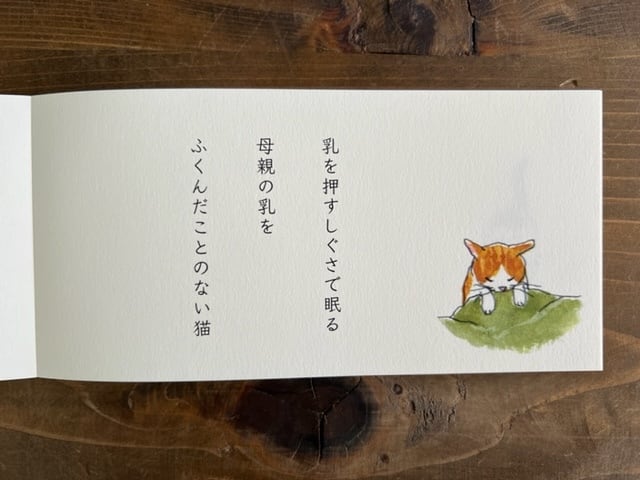 乳を押すしぐさで眠る
母親の乳を
ふくんだことのない猫